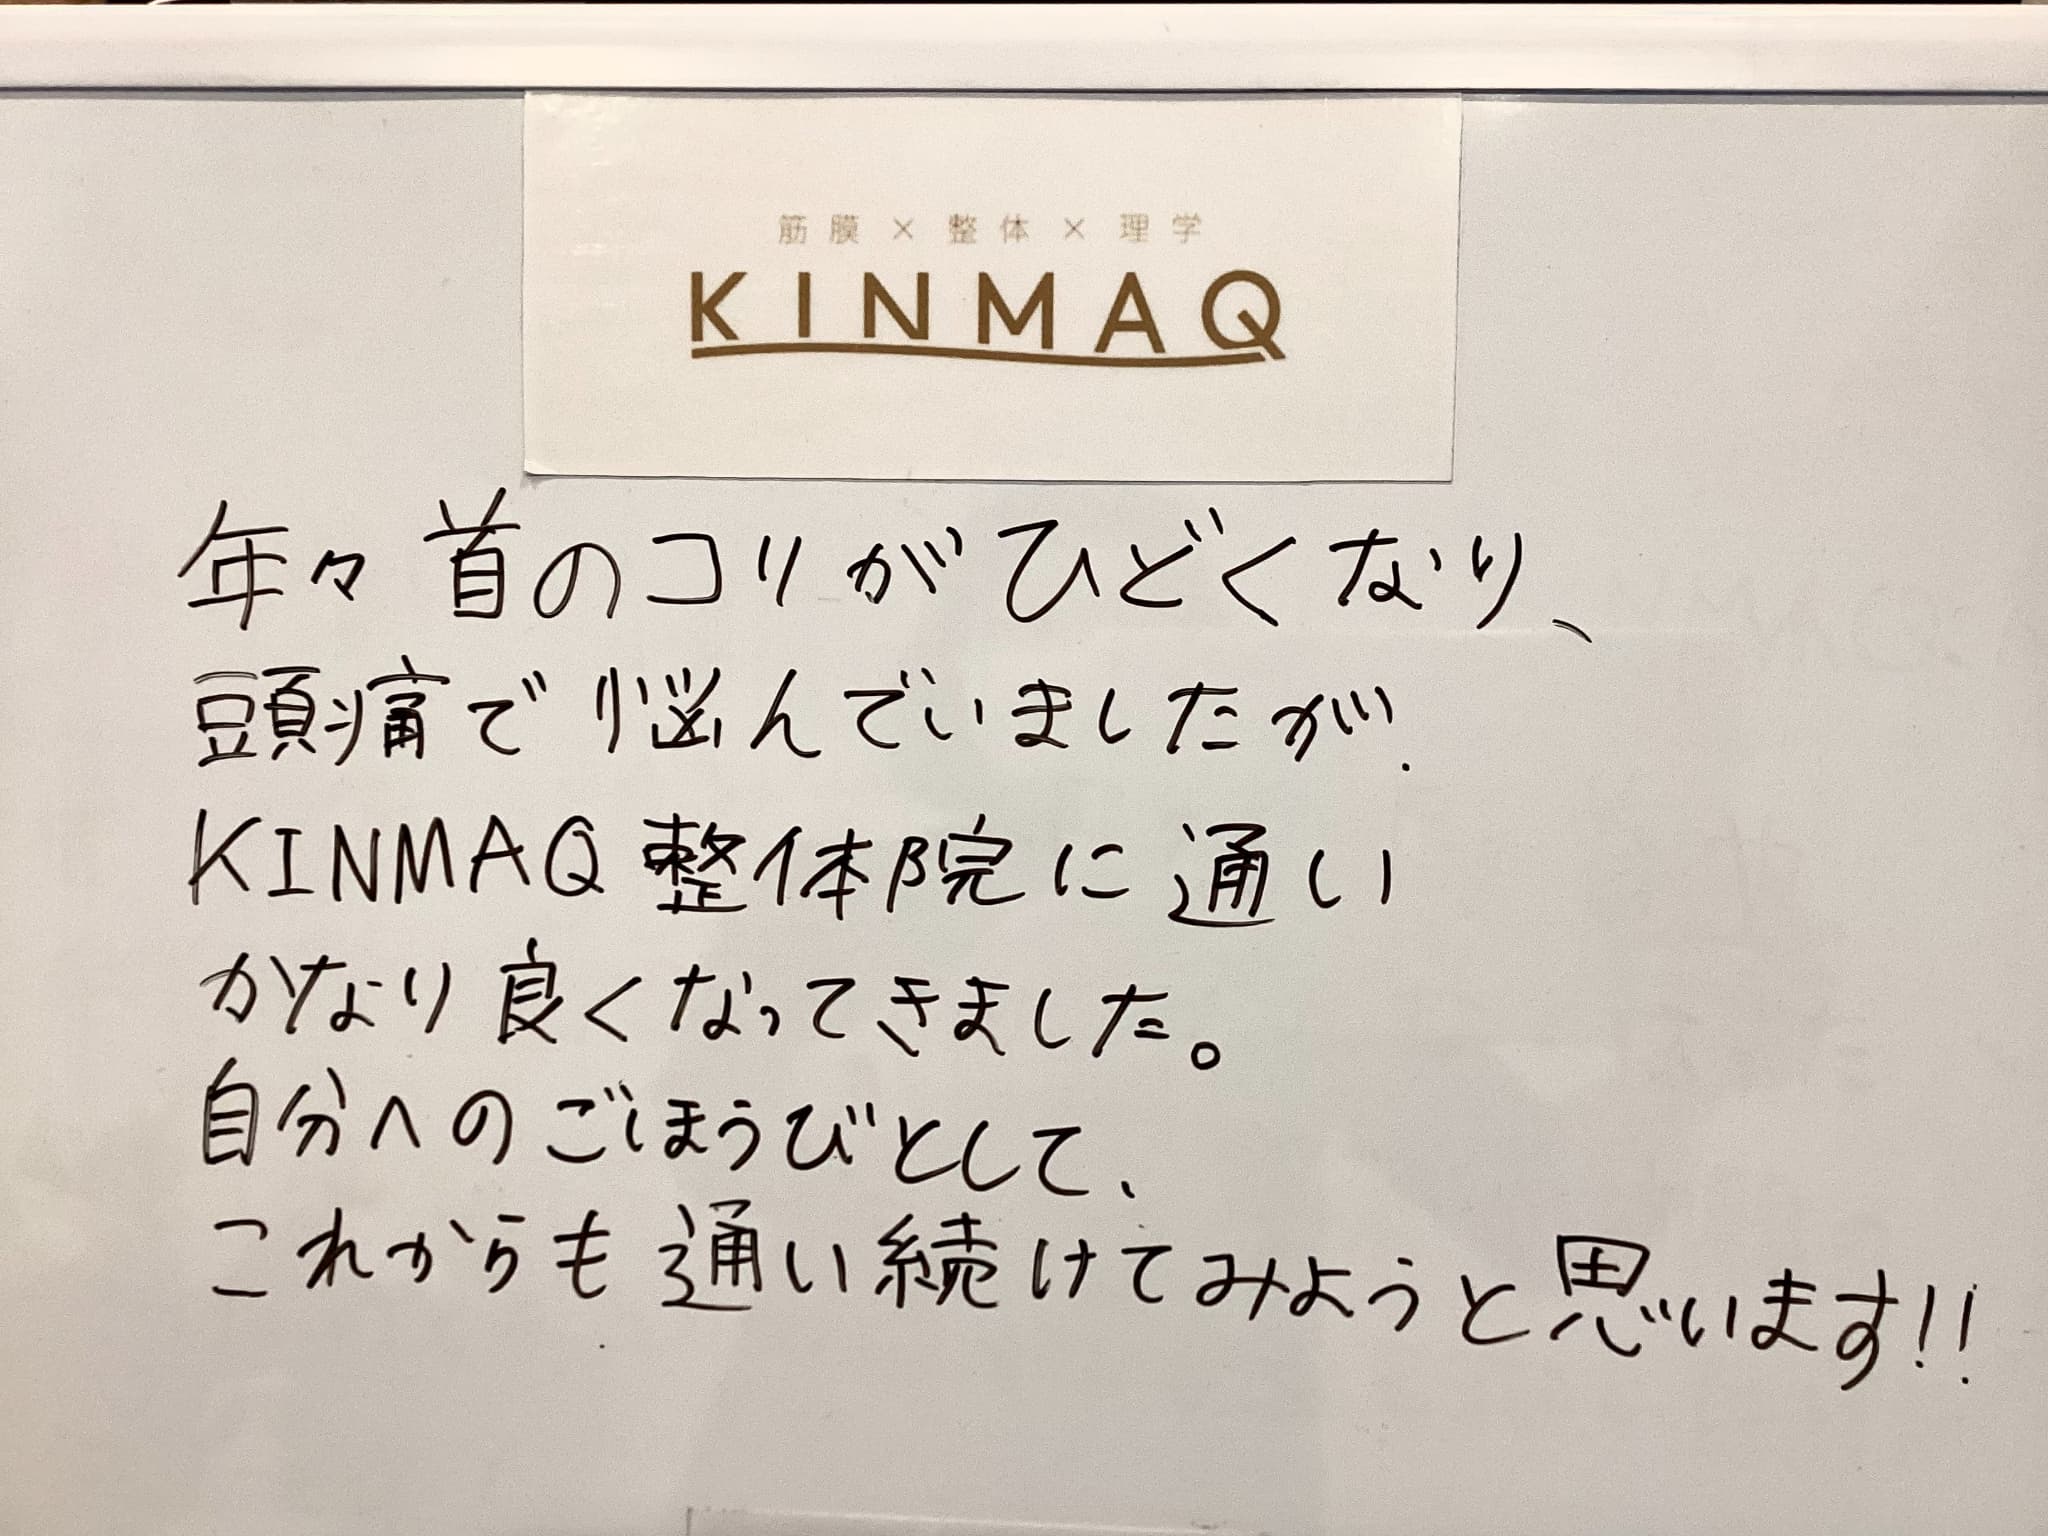 筋膜×整体×理学
KINMAQ
年々首のコリがひどくなり、
頭痛で悩んでいましたが、
KINMAQ整体院に通い
かなり良くなってきました。
自分へのごほうびとして、
これからも通い続けてみようと思います!!